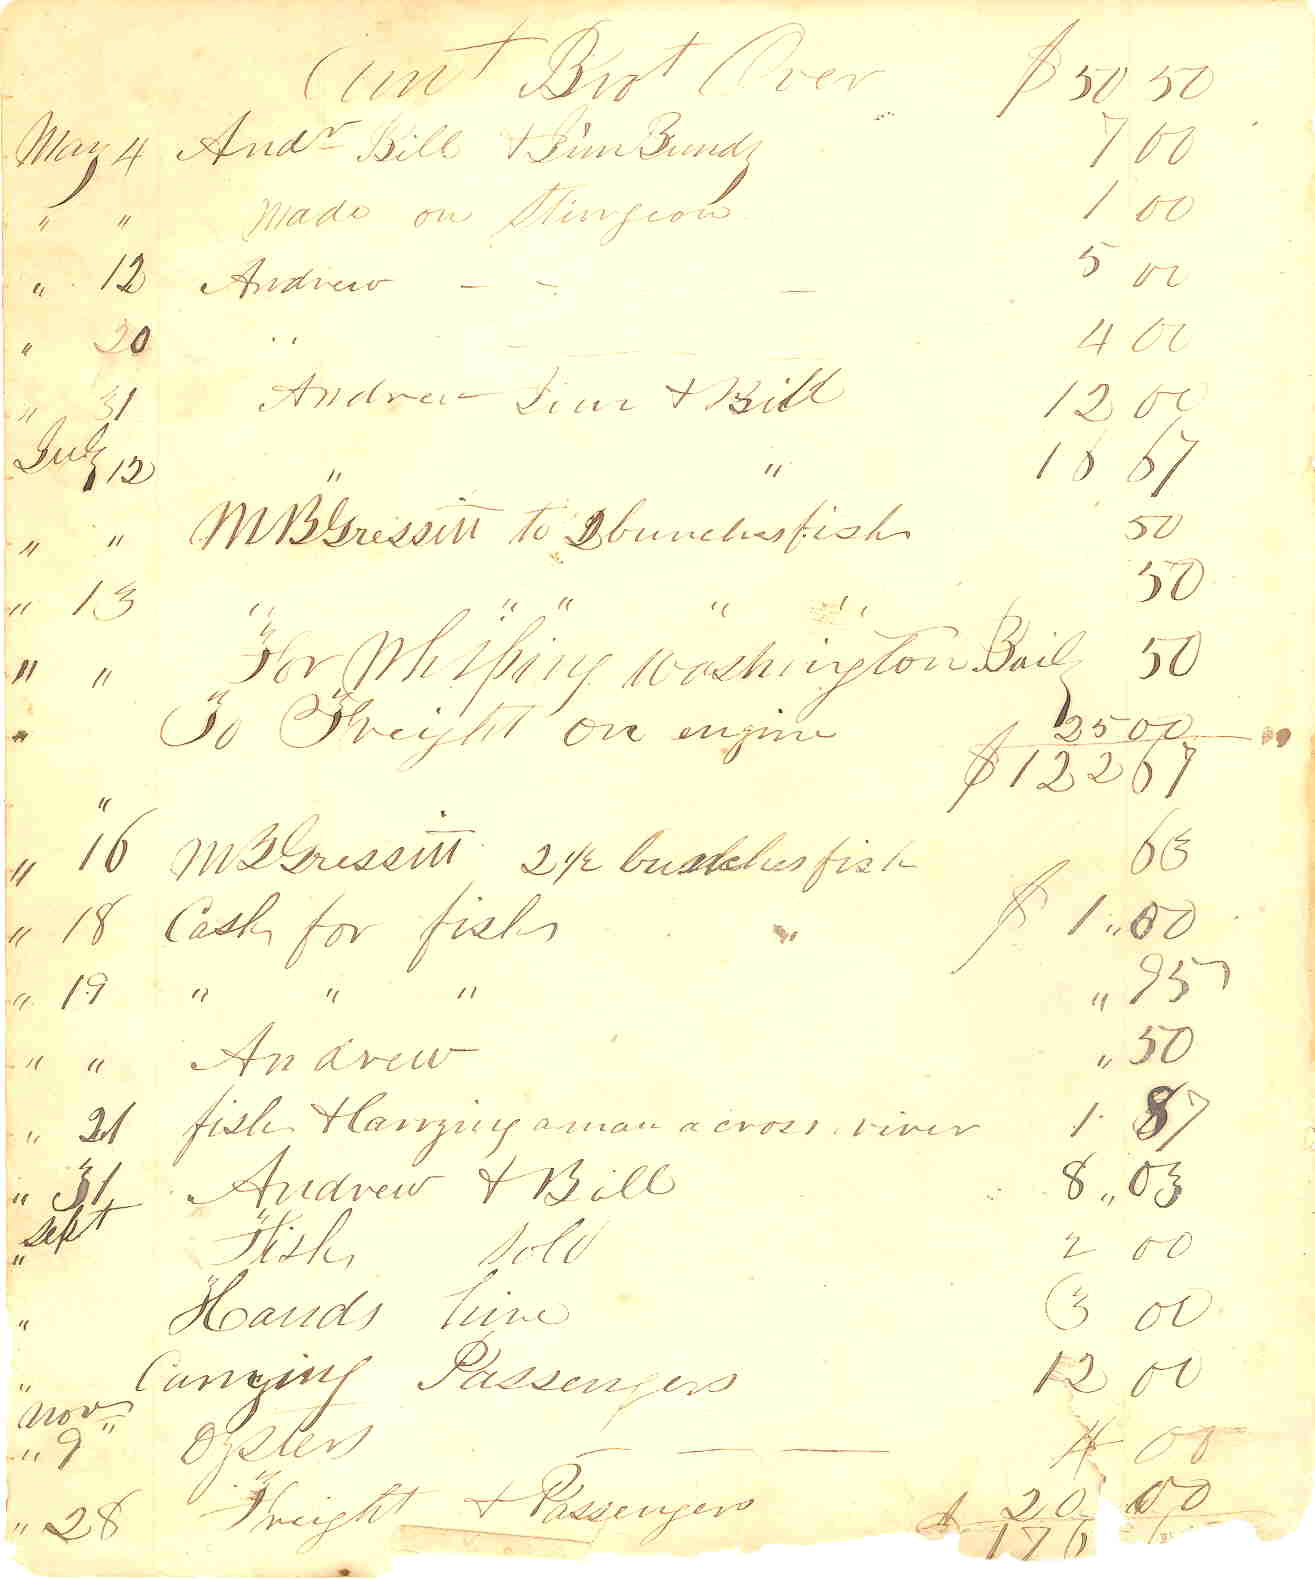 Amt Brot Over $ 50 50
May 4 Andr Bill & Jim Bundy 7 00
" " made on Sturgeon 1 00
" 12 Andrew — — — 5 00
" 20 " 4 00
" 31 Andrew Jim & Bill 12 00
July 12 " " 16 67
" " M B Gressitt to 2 bunches fish 50
" 13 " " " " " 50
" " For Whiping Washington Baily 50
" To Freight on engine 25 00
$ 122 67
" 16 M B Gressitt 2 1/2 bunches fish 63
" 18 Cash for fish " $ 1 " 00
" 19 " " " " 95
" " Andrew " 50
" 21 fish & Carrying a man across river 1 87
" 31 Andrew & Bill 8 " 03
Sept
" Fish sold 2 00
" Hands hire 3 00
" Carrying Passengers 12 00
Nov
" 9 " Oysters — — — 4 00
" 28 Freight & Passengers $ 20 00
176 6